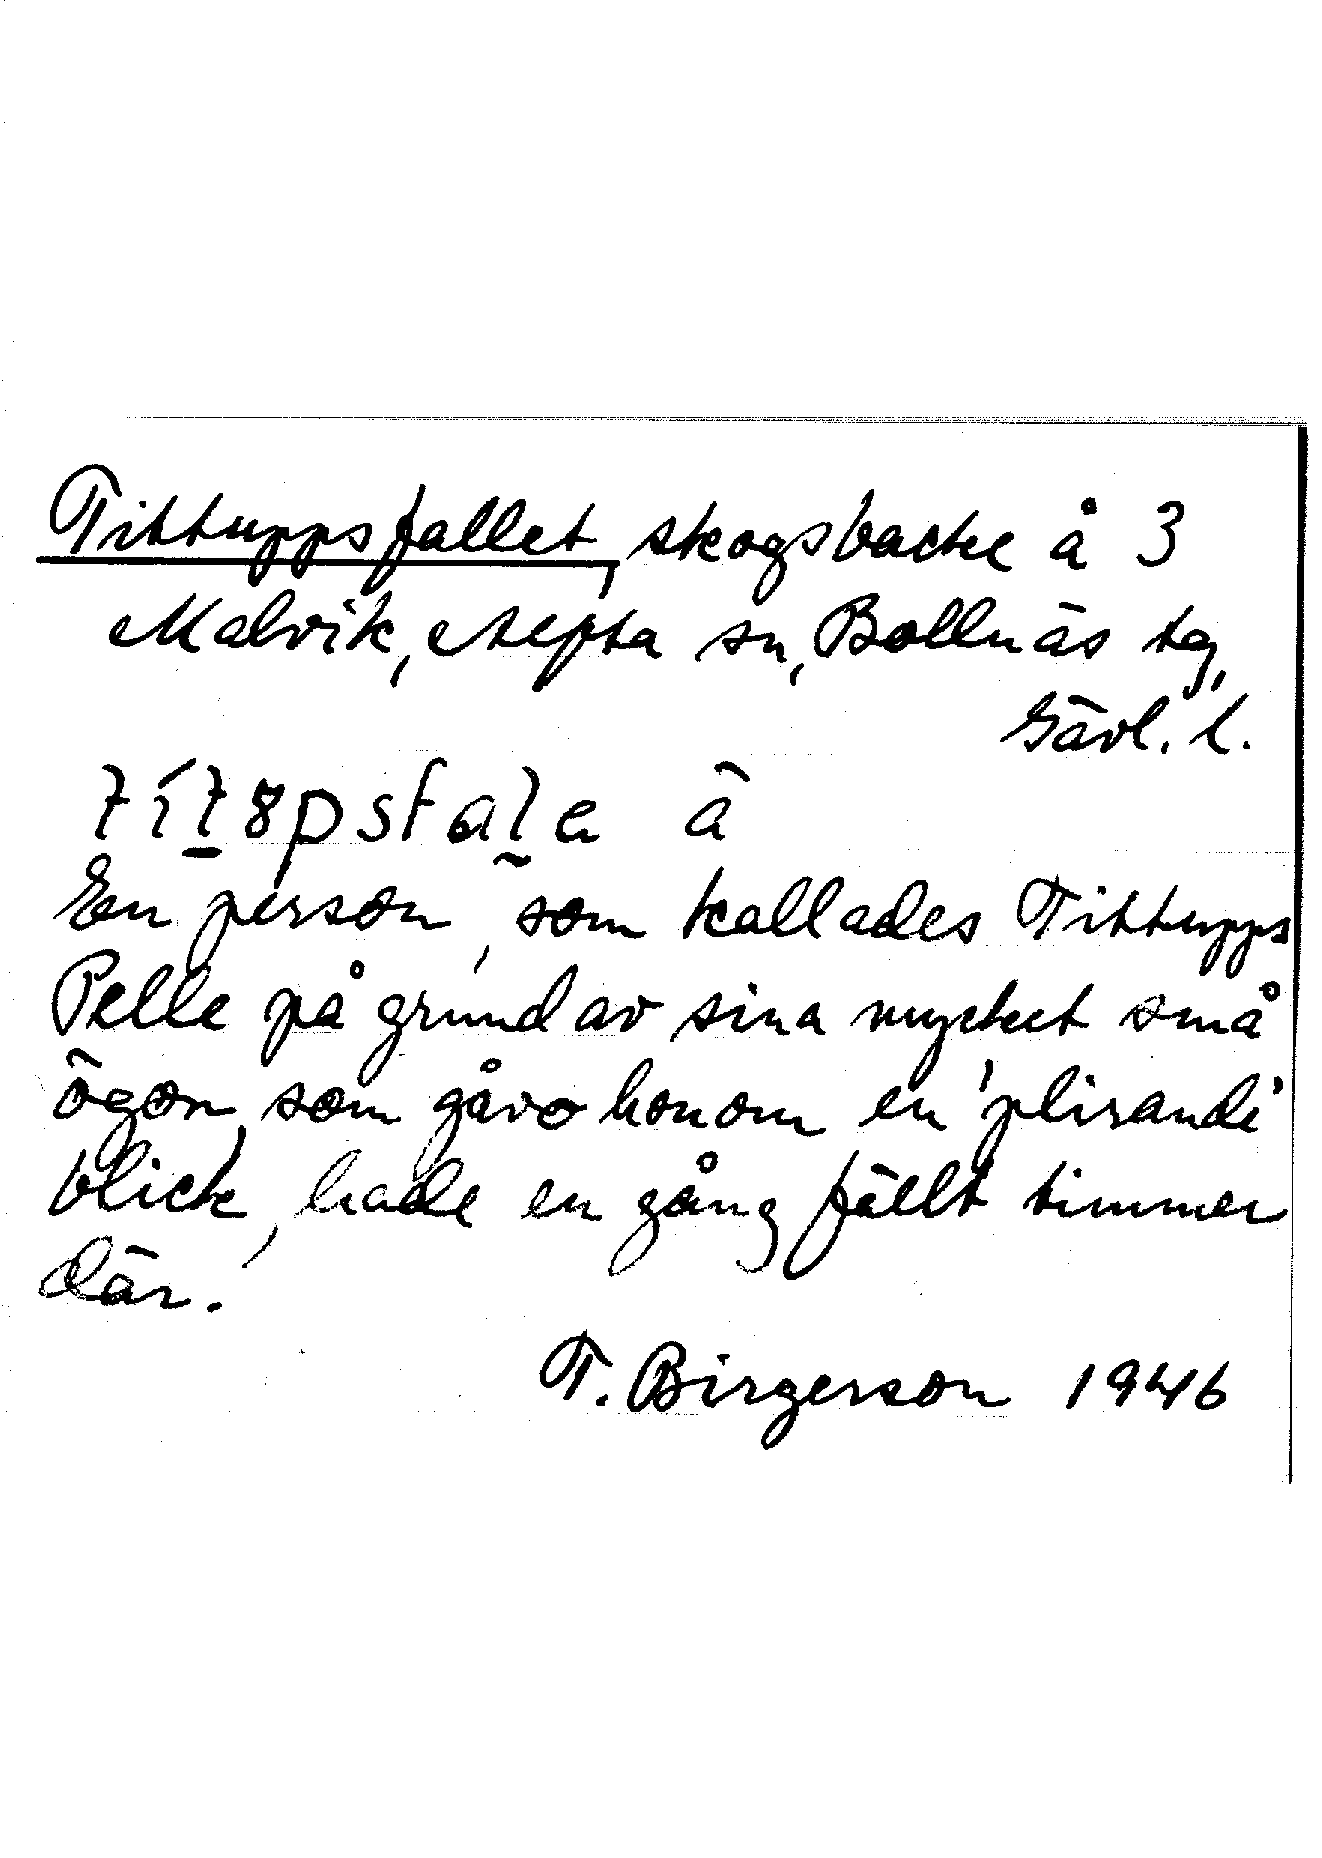 Tittuppsfallet, skogsbacke å 3
Malvik, Alfta sn, Bollnäs tg,
Gävl. l.
å
En person, som kallades Tittupps
Pelle på grund av sina mycket små
ögon, som gåvo honom en 'plirande'
blick, hade en gång fällt timmer
där.
T. Birgerson 1946